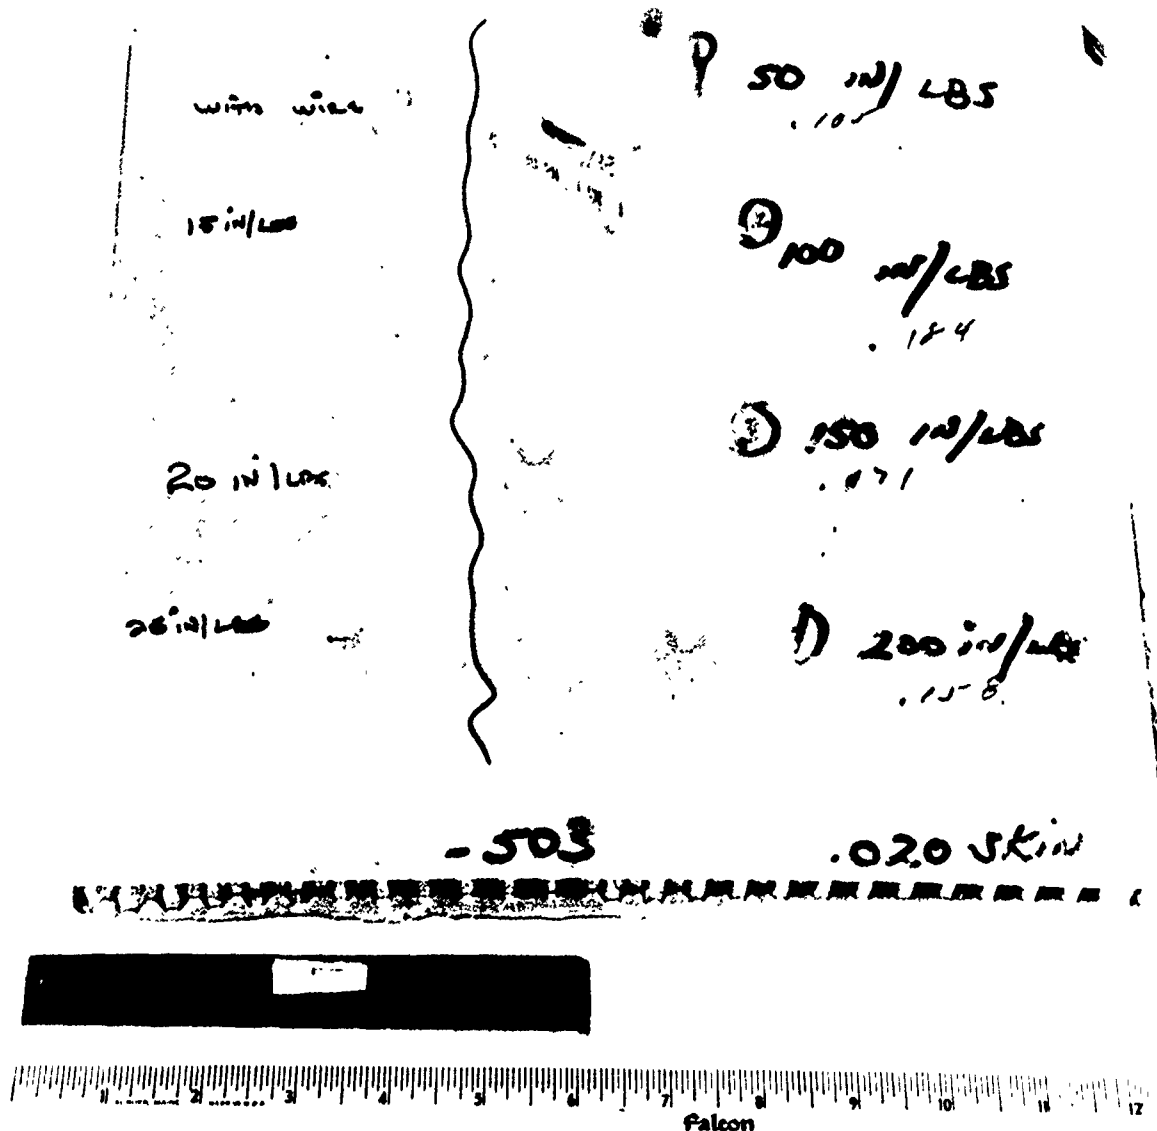 WITH WIRE
15 IN/LBS
20 IN/LBS
25 IN/LBS
1 50 IN/LBS
.105
2 100 IN/LBS
.184
3 150 IN/LBS
.171
200 IN/LBS
.158
-503 .020 SKIN
1 2 3 4 5 6 7 8 9 10 11 12
Falcon